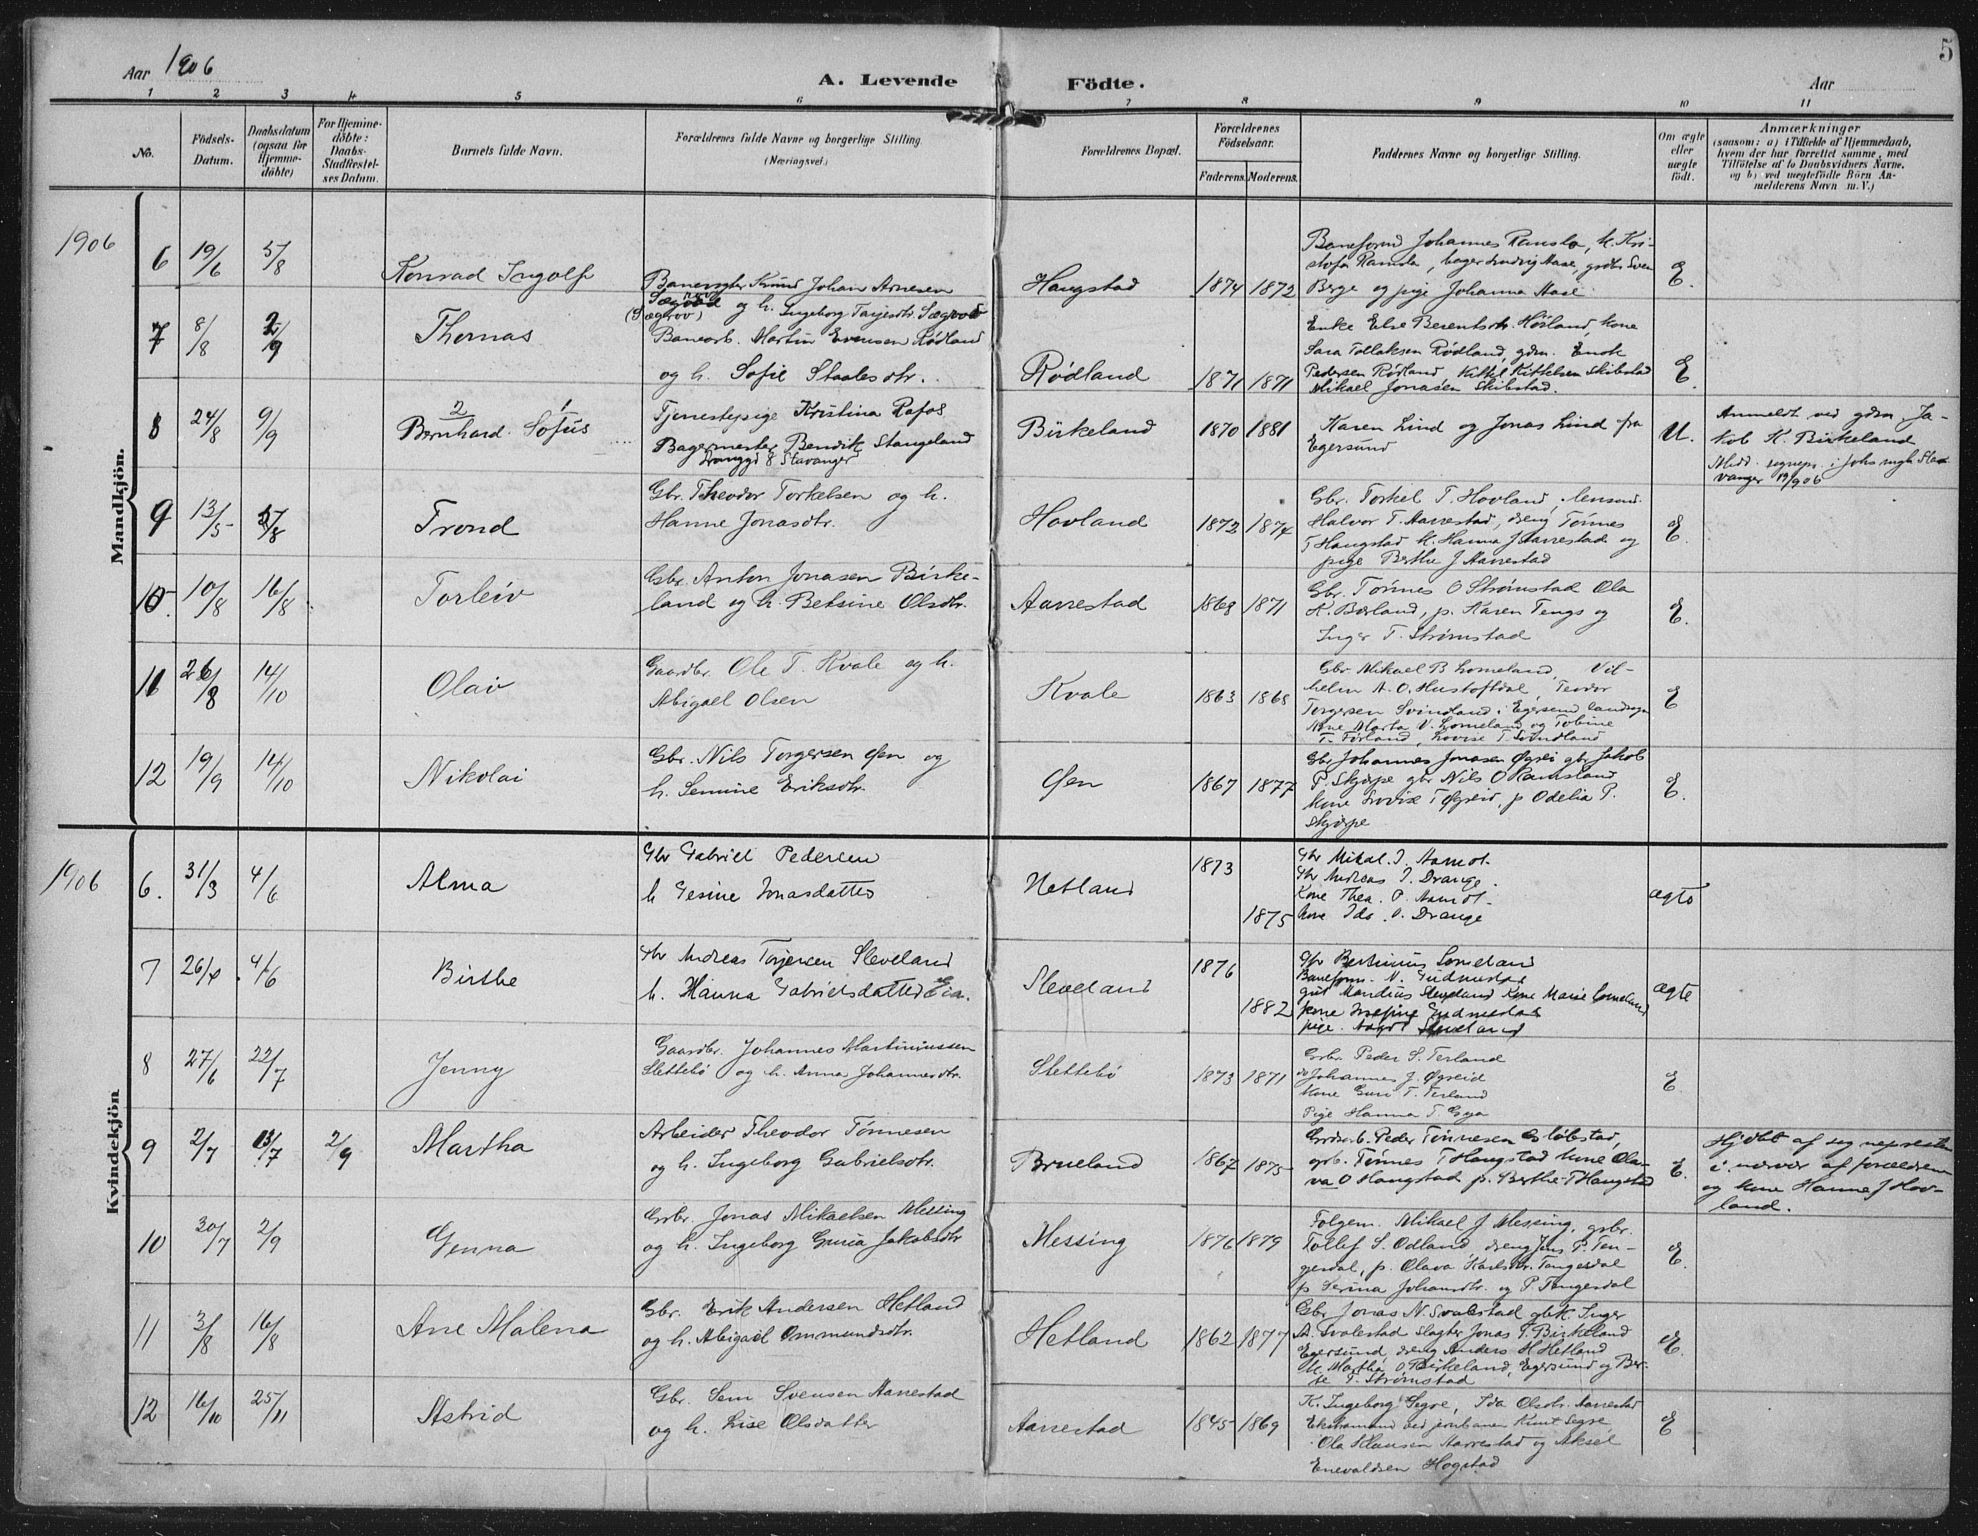 5
Aar 1906
A. Levende Födte.
Aar
1 2 3 4 5 6 7 8 9 10 11
No.
Födsels-
Datum.
Daabsdatum
(ogsaa for
Hjemme-
döbte)
For Hjemme-
döbte:
Daabs-
Stadfæstel-
ses Datum.
Barnets fulde Navn.
Forældrenes fulde Navne og borgerlige Stilling.
(Næringsvei.)
Forældrenes Bopæl.
Forældrenes
Födselsaar.
Faderens. Moderens.
Faddernes Navne og borgerlige Stilling.
Om ægte
eller
uægte
født.
Anmærkninger
(saasom: a) i Tilfælde af Hjemmedaab,
hvem der har forrettet samme, med
Tilföielse af to Daabsvidners Navne,
og b) ved uægtefödte Börn An-
melderens Navn m. V.)
Mandkjön.
1906
6 19/6 5/8
Konrad Ingolf
Banevogter Knud Johan Arnesen
(Sægrov) og h. Ingeborg Tarjesdtr. Sægrov
Haugstad
1874 1872
Baneformd Johannes Ramsla, k. Kri-
stofa Ramsla, bager Ludvig Aase, gdbr Sven
Berge og pige Johanna Aase
E.
7 8/8 2/9
Thomas
Banearb. Martin Evensen Rødland
og h. Sofie Staalesdtr.
Rødland
1871 1871
Enke Else Berentsdtr. Hørland, kone
Sara Tollaksen Rødland, gdm. Enok
Pedersen Rødland Kittel Kittelsen Skibstad
Mikael Jonasen Skibstad.
E.
8 24/8 9/9
2 1
Bernhard Sofus
Tjenestepige Kristina Rafos
Bagermester Bendik Stangeland
Stavanger
Birkeland
1870 1881
Karen Lind og Jonas Lind fra
Egersund
U.
Anmeldt ved gdm. Ja-
kob K. Birkeland
vanger 19/9 06
9 13/5 5/8
Trond
Gbr. Theodor Torkelsen og h.
Hanne Jonasdtr.
Hovland
1872 1874
Gbr. Torkel T. Hovland,
Halvor T. Aarrestad, dreng Tønnes
T Haugstad k. Hanna J Aarrestad og
pige Berthe J Aarrestad
E.
10. 10/8 16/8
Torleiv
Gbr. Anton Jonasen Birke-
land og h. Betsine Olsdtr.
Aarrestad
1868 1871
Gbr. Tønnes O Strømstad Ola
K. Birland, p. Karen Tengs og
Inger T. Strømstad
E.
11 26/8 14/10
Olav
Gaardbr. Ole T. Kvale og h.
Abigael Olsen
Kvale
1863 1868
Gbr. Mikael B Lomeland Vil-
helm A. O. Hustoftdal, Teodor
Torgersen Svindland i Egersund landsogn
Kone Marta V. Lomeland og Tobine
T. Førland, Lovise T Svindland
E
12 19/9 14/10
Nikolai
Gbr. Nils Torgersen Øen og
h. Semine Eriksdtr.
Øen
1867 1877
Gbr Johannes Jonasen Øgrei gbr Jakob
P. Skjerpe gbr Nils O Ramsland
kone Lovise T Øgreid, p Odelia P.
Skjerpe
E.
Kvindekjön
1906
6. 31/3 4/6
Alma
Gbr Gabriel Pedersen
h Gesine Jonasdatter
Hetland
1873
1875
Gbr Mikal. I. Aamot.
Gbr Andreas I. Drange.
Kone Thea. P. Aamot.
kone Ida. O. Drange
ægte
7 26/4 4/6
Birthe
Gbr Andreas Torjersen Sleveland
h. Hanna Gabrielsdatter Eia.
Sleveland
1876
1882
Gbr Bertinius Lomeland
Baneform. N. Gudmestad
gut Mandius Sleveland Kone Marie Lomeland
kone Josefine Gudmestad
pige. Sleveland
ægte
8 27/6 22/7
Jenny
Gaardbr. Johannes Martiniussen
Slettebö og h. Anna Johannesdtr.
Slettebö
1873 1871
Grbr. Peder S. Terland
do Johannes J. Øgreid
Kone Guri T. Terland
Pige Hanna T. Gya
E.
9 2/7 13/7 2/9
Martha
Arbeider Theodor Tönnesen
og h. Ingeborg Gabrielsdtr.
Brueland
1867 1875
Peder Tønnesen
grb. Tønnes T Haugstad kone Ola-
va O Haugstad p. Berthe T Haugstad
E.
Hjdbt af sogneprest
i nærvær af forældrene
og kone Hanne J Hov-
land.
10 30/7 2/9
Genna
Grbr. Jonas Mikaelsen Messing
og h. Ingeborg Guria Jakobsdtr
Messing
1876 1879
Folgem. Mikael J Messing, grbr.
Tollef S. Odland, dreng Jens P. Ten-
gesdal, p. Olava Karlsdtr. Tengesdal
p Serina Johansdtr. og P. Tengesdal
E.
11 3/8 16/8
Ane Malena
Gbr. Erik Andersen Hetland
og h. Abigael Ommundsdtr.
Hetland
1862 1877
Gbr Jonas N. Svalestad gbk Inger
A. Svalestad slagter Jonas T. Birkeland
Egersund, dreng Anders H Hetland
k. Martha O Birkeland, Egersund og Ber-
te T. Strømstad
E.
12 16/10 25/11
Astrid
Gbr. Sem Svensen Aarrestad
og h. Lise Olsdatter
Aarrestad
1845 1869
K. Ingeborg Segve, Ida Olsdtr. Aarrestad
Ekstramand ved jernbanen Knut Segve
Ola Klausen Aarrestad og Aksel
Enevaldsen Hogstad
E